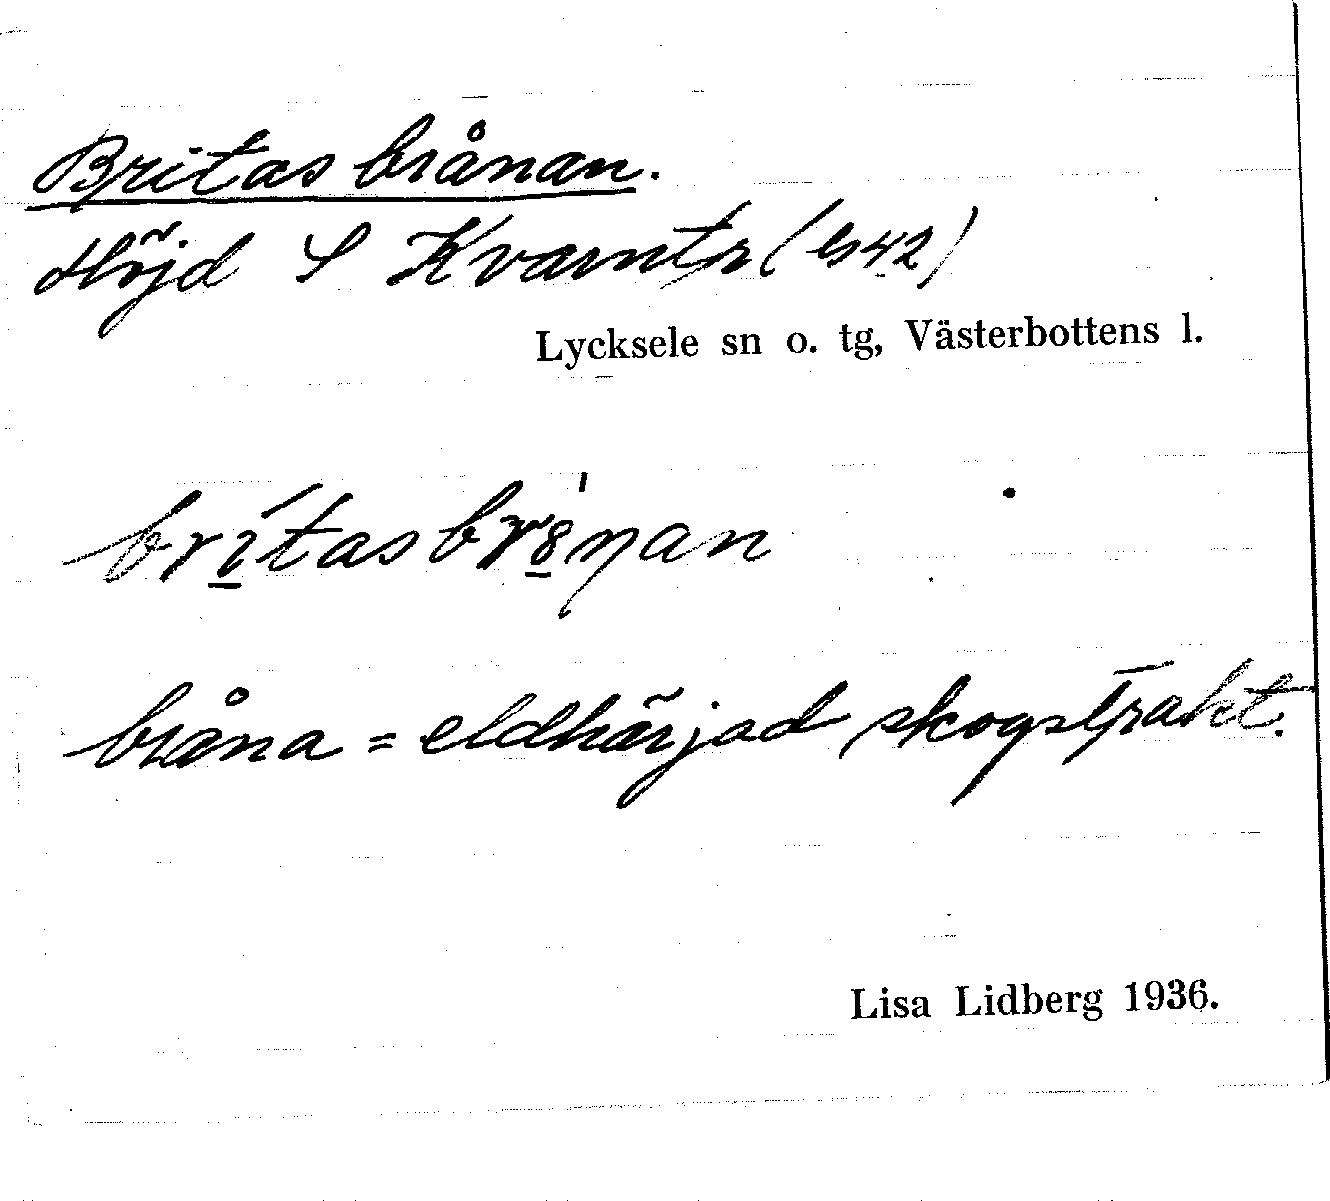 Britasbrånan.
Höjd S Kvarntr (h42)
Lycksele sn o. tg, Västerbottens l.
britasbrånan
bråna = eldhärjad skogstrakt.
Lisa Lidberg 1936.